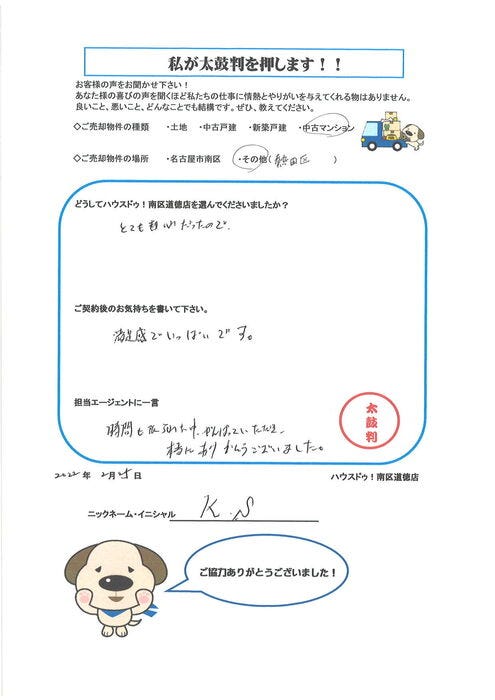 私が太鼓判を押します！！
お客様の声をお聞かせ下さい！
あなた様の喜びの声を聞くほど私たちの仕事に情熱とやりがいを与えてくれる物はありません。
良いこと、悪いこと、どんなことでも結構です。ぜひ、教えてください。
◇ご売却物件の種類 ・土地 ・中古戸建 ・新築戸建 ・中古マンション
◇ご売却物件の場所 ・名古屋市南区 ・その他（熱田区 ）
どうしてハウスドゥ！南区道徳店を選んでくださいましたか？
とても だったので.
ご契約後のお気持ちを書いて下さい。
満足感でいっぱいです。
担当エージェントに一言
時間も 中、がんばっていただき、
ありがとうございました。
太鼓判
2022年 2月25日
ハウスドゥ！南区道徳店
ニックネーム・イニシャル K.S
ご協力ありがとうございました！